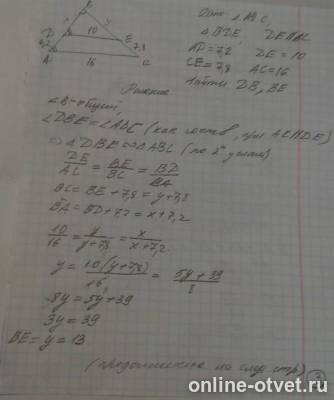 B
x
y
10
D
E
7,2
7,8
A
16
C
Дано: △ABC,
△BDE DE||AC
AD=7,2 DE=10
CE=7,8 AC=16
Найти DB, BE
Решение
∠B - общий,
(как соотв. при AC||DE)
⇒ △DBE ∾ △ABC (по 2м углам)
DE/AC = BE/BC = BD/BA
BC = BE + 7,8 = y+7,8
BA = BD+7,2 = x+7,2
10/16 = y/(y+7,8) = x/(x+7,2)
y = 10(y+7,8)/16 = (5y+39)/8
8y = 5y+39
3y = 39
BE = y = 13
(продолжение на след стр)
online-otvet.ru